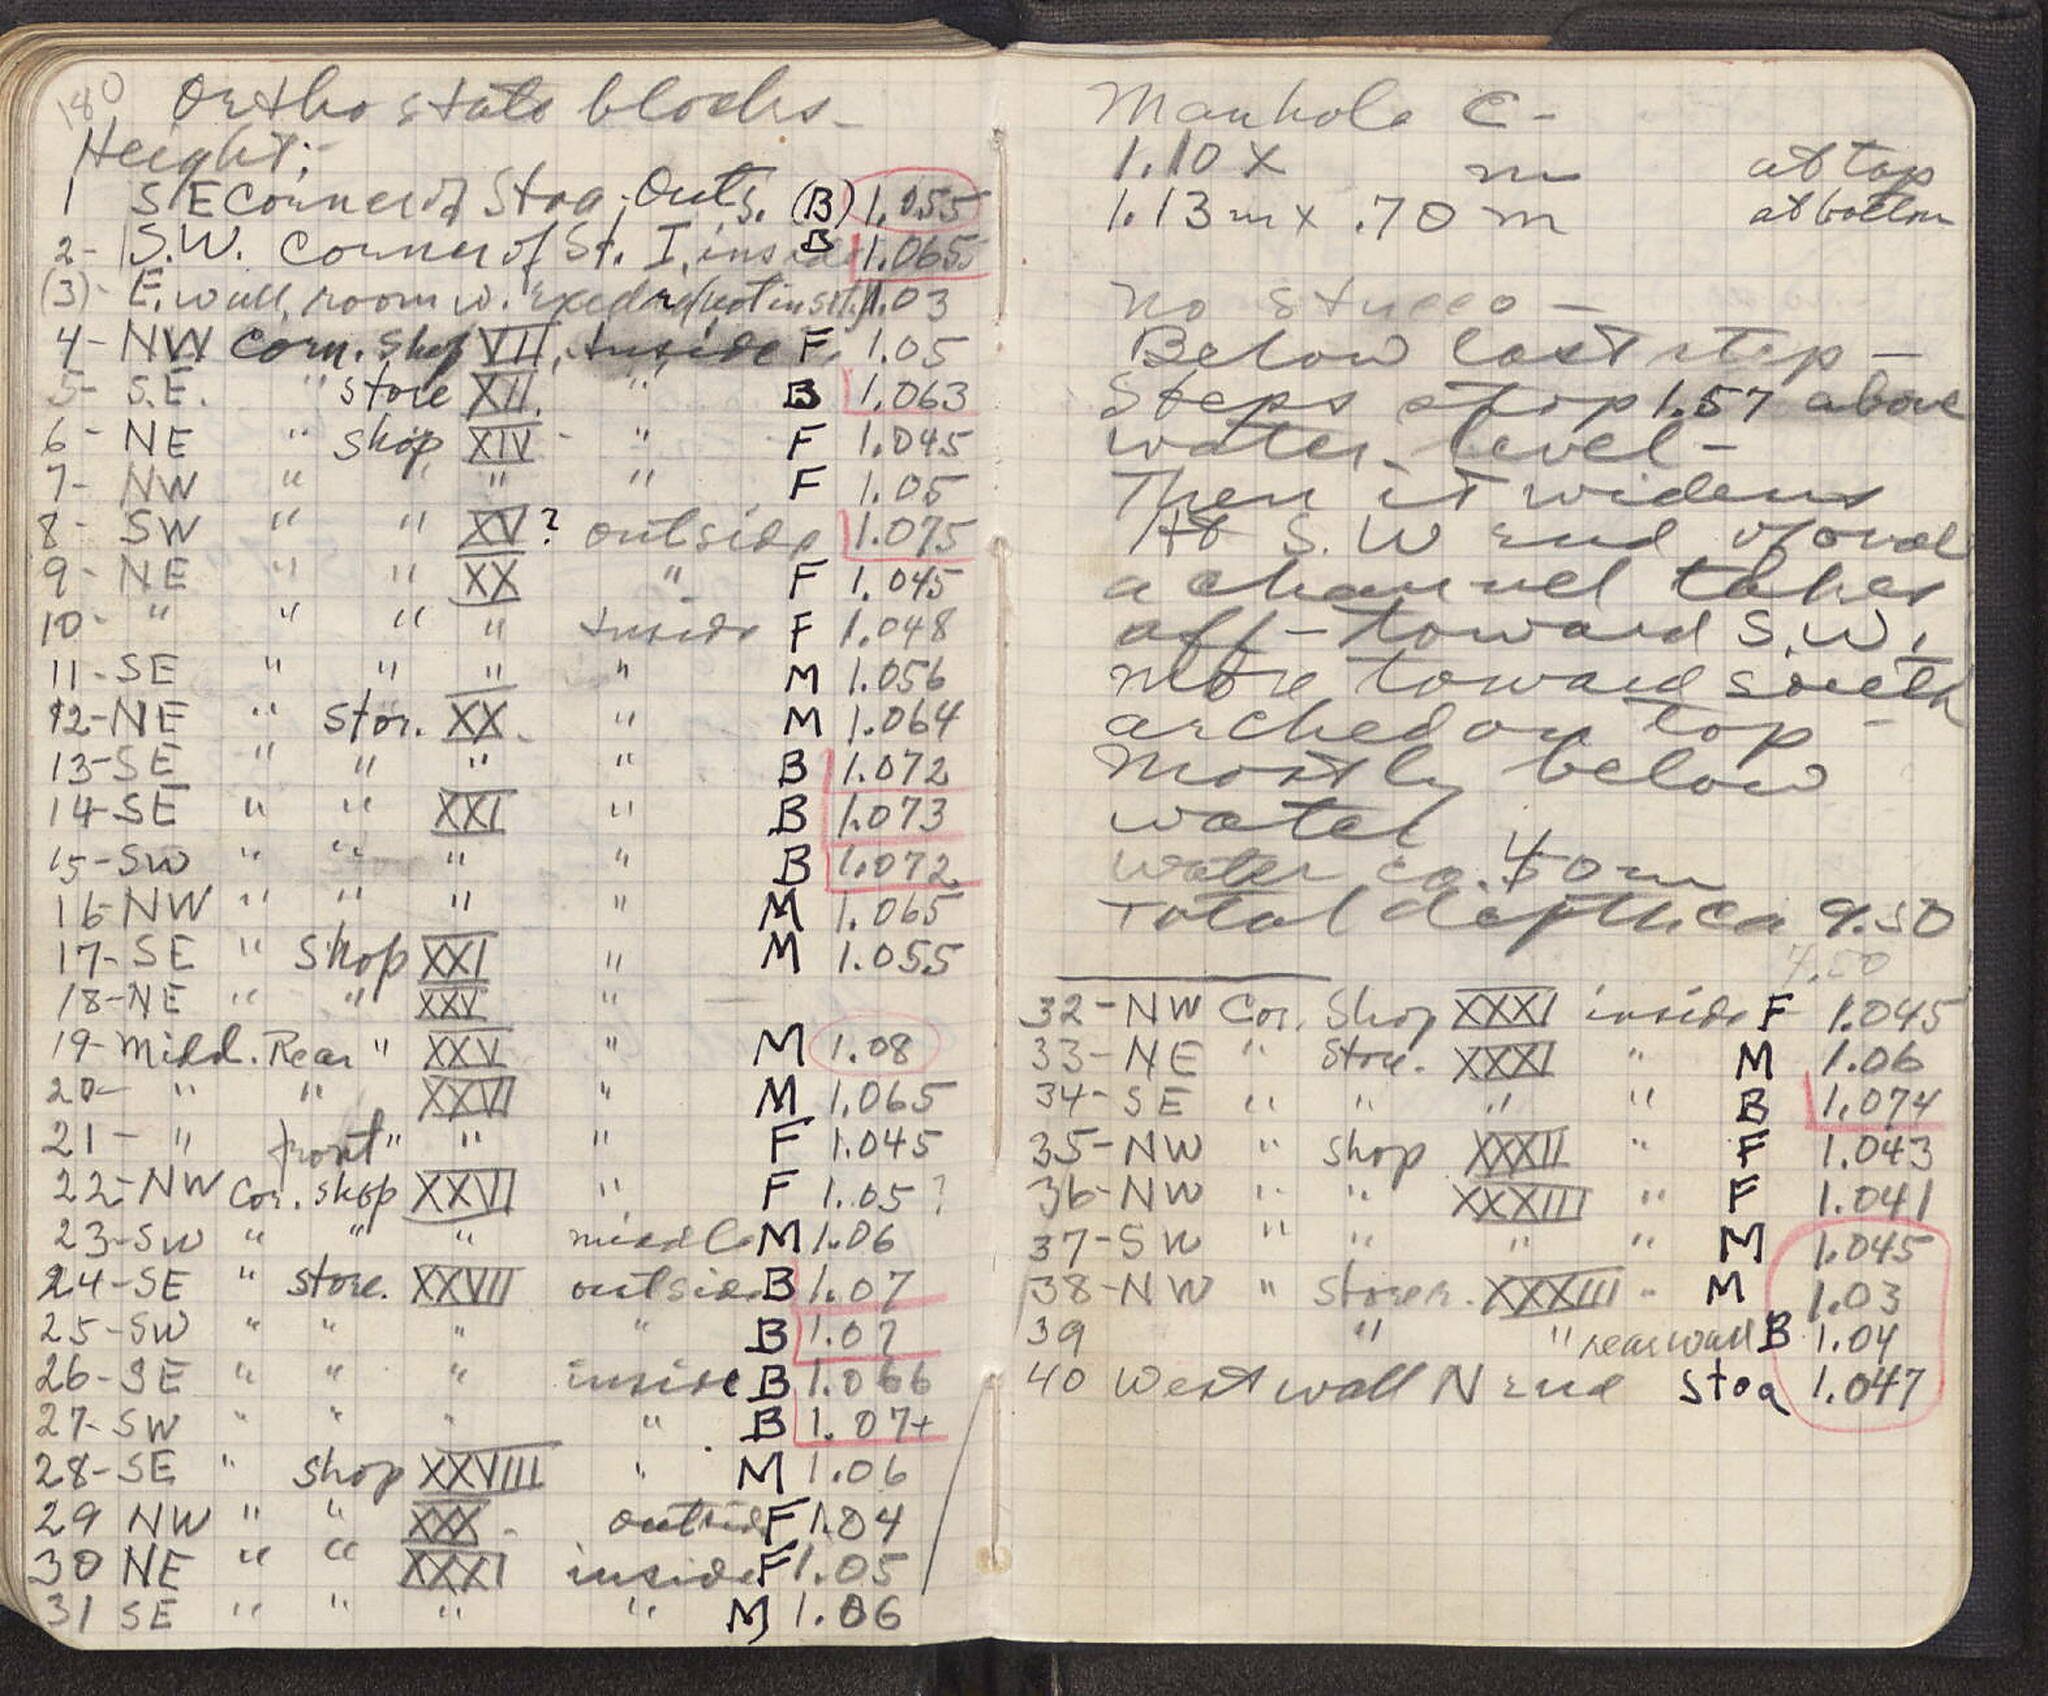 180 Orthostate blocks-
Height:-
1 SE Corner of Stoa. Outs. (B) 1.055
2- S.W. Corner of St. I, inside B 1.065
(3)- E. wall, room w. Exedra (not in situ) 1.03
4- NW Corn. Shop VII, Inside F, 1.05
5- S.E. " store XII. " B 1.063
6- NE " shop XIV - " F 1.045
7- NW " " " " F 1.05
8- SW " " XV? outside 1.075
9- NE " " XX " F 1.045
10- " " " " Inside F 1.048
11- SE " " " " M 1.056
12- NE " stor. XX. " M 1.064
13- SE " " " " B 1.072
14- SE " " XXI " B 1.073
15- SW " " " " B 1.072
16- NW " " " " M 1.065
17- SE " Shop XXI " M 1.055
18- NE " " XXV " —
19- Midd. Rear " XXV " M 1.08
20- " " XXVI " M 1.065
21- " front " " " F 1.045
22- NW Cor. shop XXVI " F 1.05?
23- SW " " " middle M 1.06
24- SE " store. XXVII outside B 1.07
25- SW " " " " B 1.07
26- SE " " " inside B 1.066
27- SW " " " " B 1.07+
28- SE " shop XXVIII " M 1.06
29 NW " " XXX - outside F 1.04
30 NE " " XXXI inside F 1.05
31 SE " " " " M 1.06
Manhole C-
1.10 x m at top
1.13 m x .70 m at bottom
No stucco -
Below last step -
Steps stop 1.57 above
water level -
Then it widens
At S.W end of oval
a channel takes
off - toward S.W,
more toward south
arched on top -
Mostly below
water
water ca. .40m
Total depth ca 9.50
7.50
32- NW Cor. Shop XXXI inside F 1.045
33- NE " Store. XXXI " M 1.06
34- SE " " " " B 1.074
35- NW " shop XXXII " F 1.043
36- NW " " XXXIII " F 1.041
37- SW " " " " M 1.045
38- NW " Storer. XXXIII " M 1.03
39 " " rear wall B 1.04
40 West wall N end Stoa 1.047